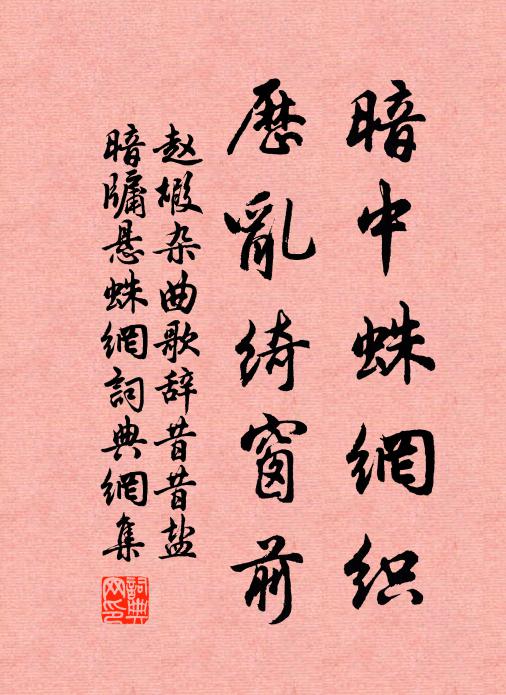 暗中蛛網织
歷亂綺窗前
赵嘏杂曲歌辞昔昔盐
暗牖悬蛛網詞典網集
詞典
网印